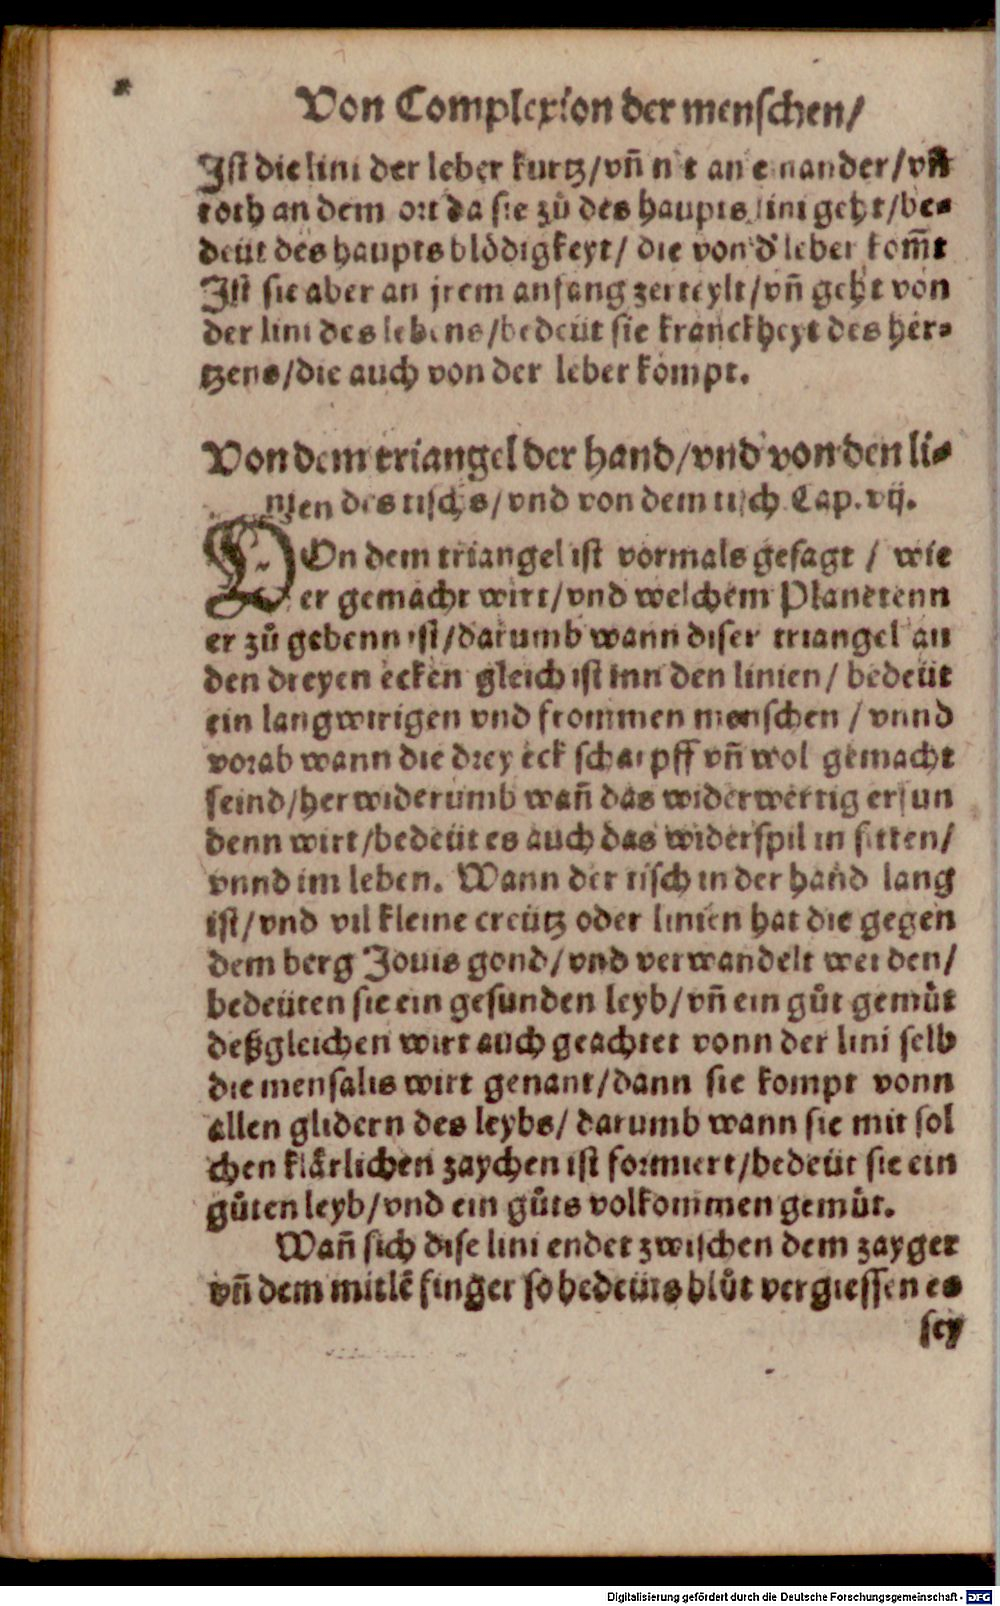 Von Complexion der menschen/
Ist die lini der leber kurtz/vñ nit an einander/vñ
roth an dem ort da sie zů des haupts lini geht/be-
deüt des haupts blödigkeyt/ die von d' leber kom̃t
Ist sie aber an jrem anfang zerteylt/vñ geht von
der lini des lebens/bedeüt sie kranckheyt des her-
tzens/die auch von der leber kompt.
Von dem triangel der hand/vnd von den li-
nien des tischs/vnd von dem tisch Cap.vij.
VOn dem triangel ist vormals gesagt / wie
er gemacht wirt/vnd welchem Planetenn
er zů gebenn ist/darumb wann diser triangel an
den dreyen ecken gleich ist inn den linien/ bedeüt
ein langwirigen vnd frommen menschen / vnnd
vorab wann die drey eck scharpff vñ wol gemacht
seind/herwiderumb wañ das widerwertig erfun
denn wirt/bedeüt es auch das widerspil in sitten/
vnnd im leben. Wann der tisch in der hand lang
ist/vnd vil kleine creütz oder linien hat die gegen
dem berg Jouis gond/vnd verwandelt werden/
bedeüten sie ein gesunden leyb/vñ ein gůt gemůt
deßgleichen wirt auch geachtet vonn der lini selb
die mensalis wirt genant/dann sie kompt vonn
allen glidern des leybs/ darumb wann sie mit sol
chen klärlichen zaychen ist formiert/bedeüt sie ein
gůten leyb/vnd ein gůts volkommen gemůt.
Wañ sich dise lini endet zwischen dem zayger
vñ dem mitlẽ finger so bedeüts blůt vergiessen es
sey
Digitalisierung gefördert durch die Deutsche Forschungsgemeinschaft - DFG